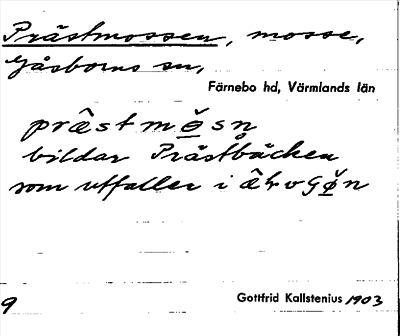 Prästmossen, mosse,
Gåsborns sn,
Färnebo hd, Värmlands län
bildar Prästbäcken
som utfaller i
9
Gottfrid Kallstenius 1903